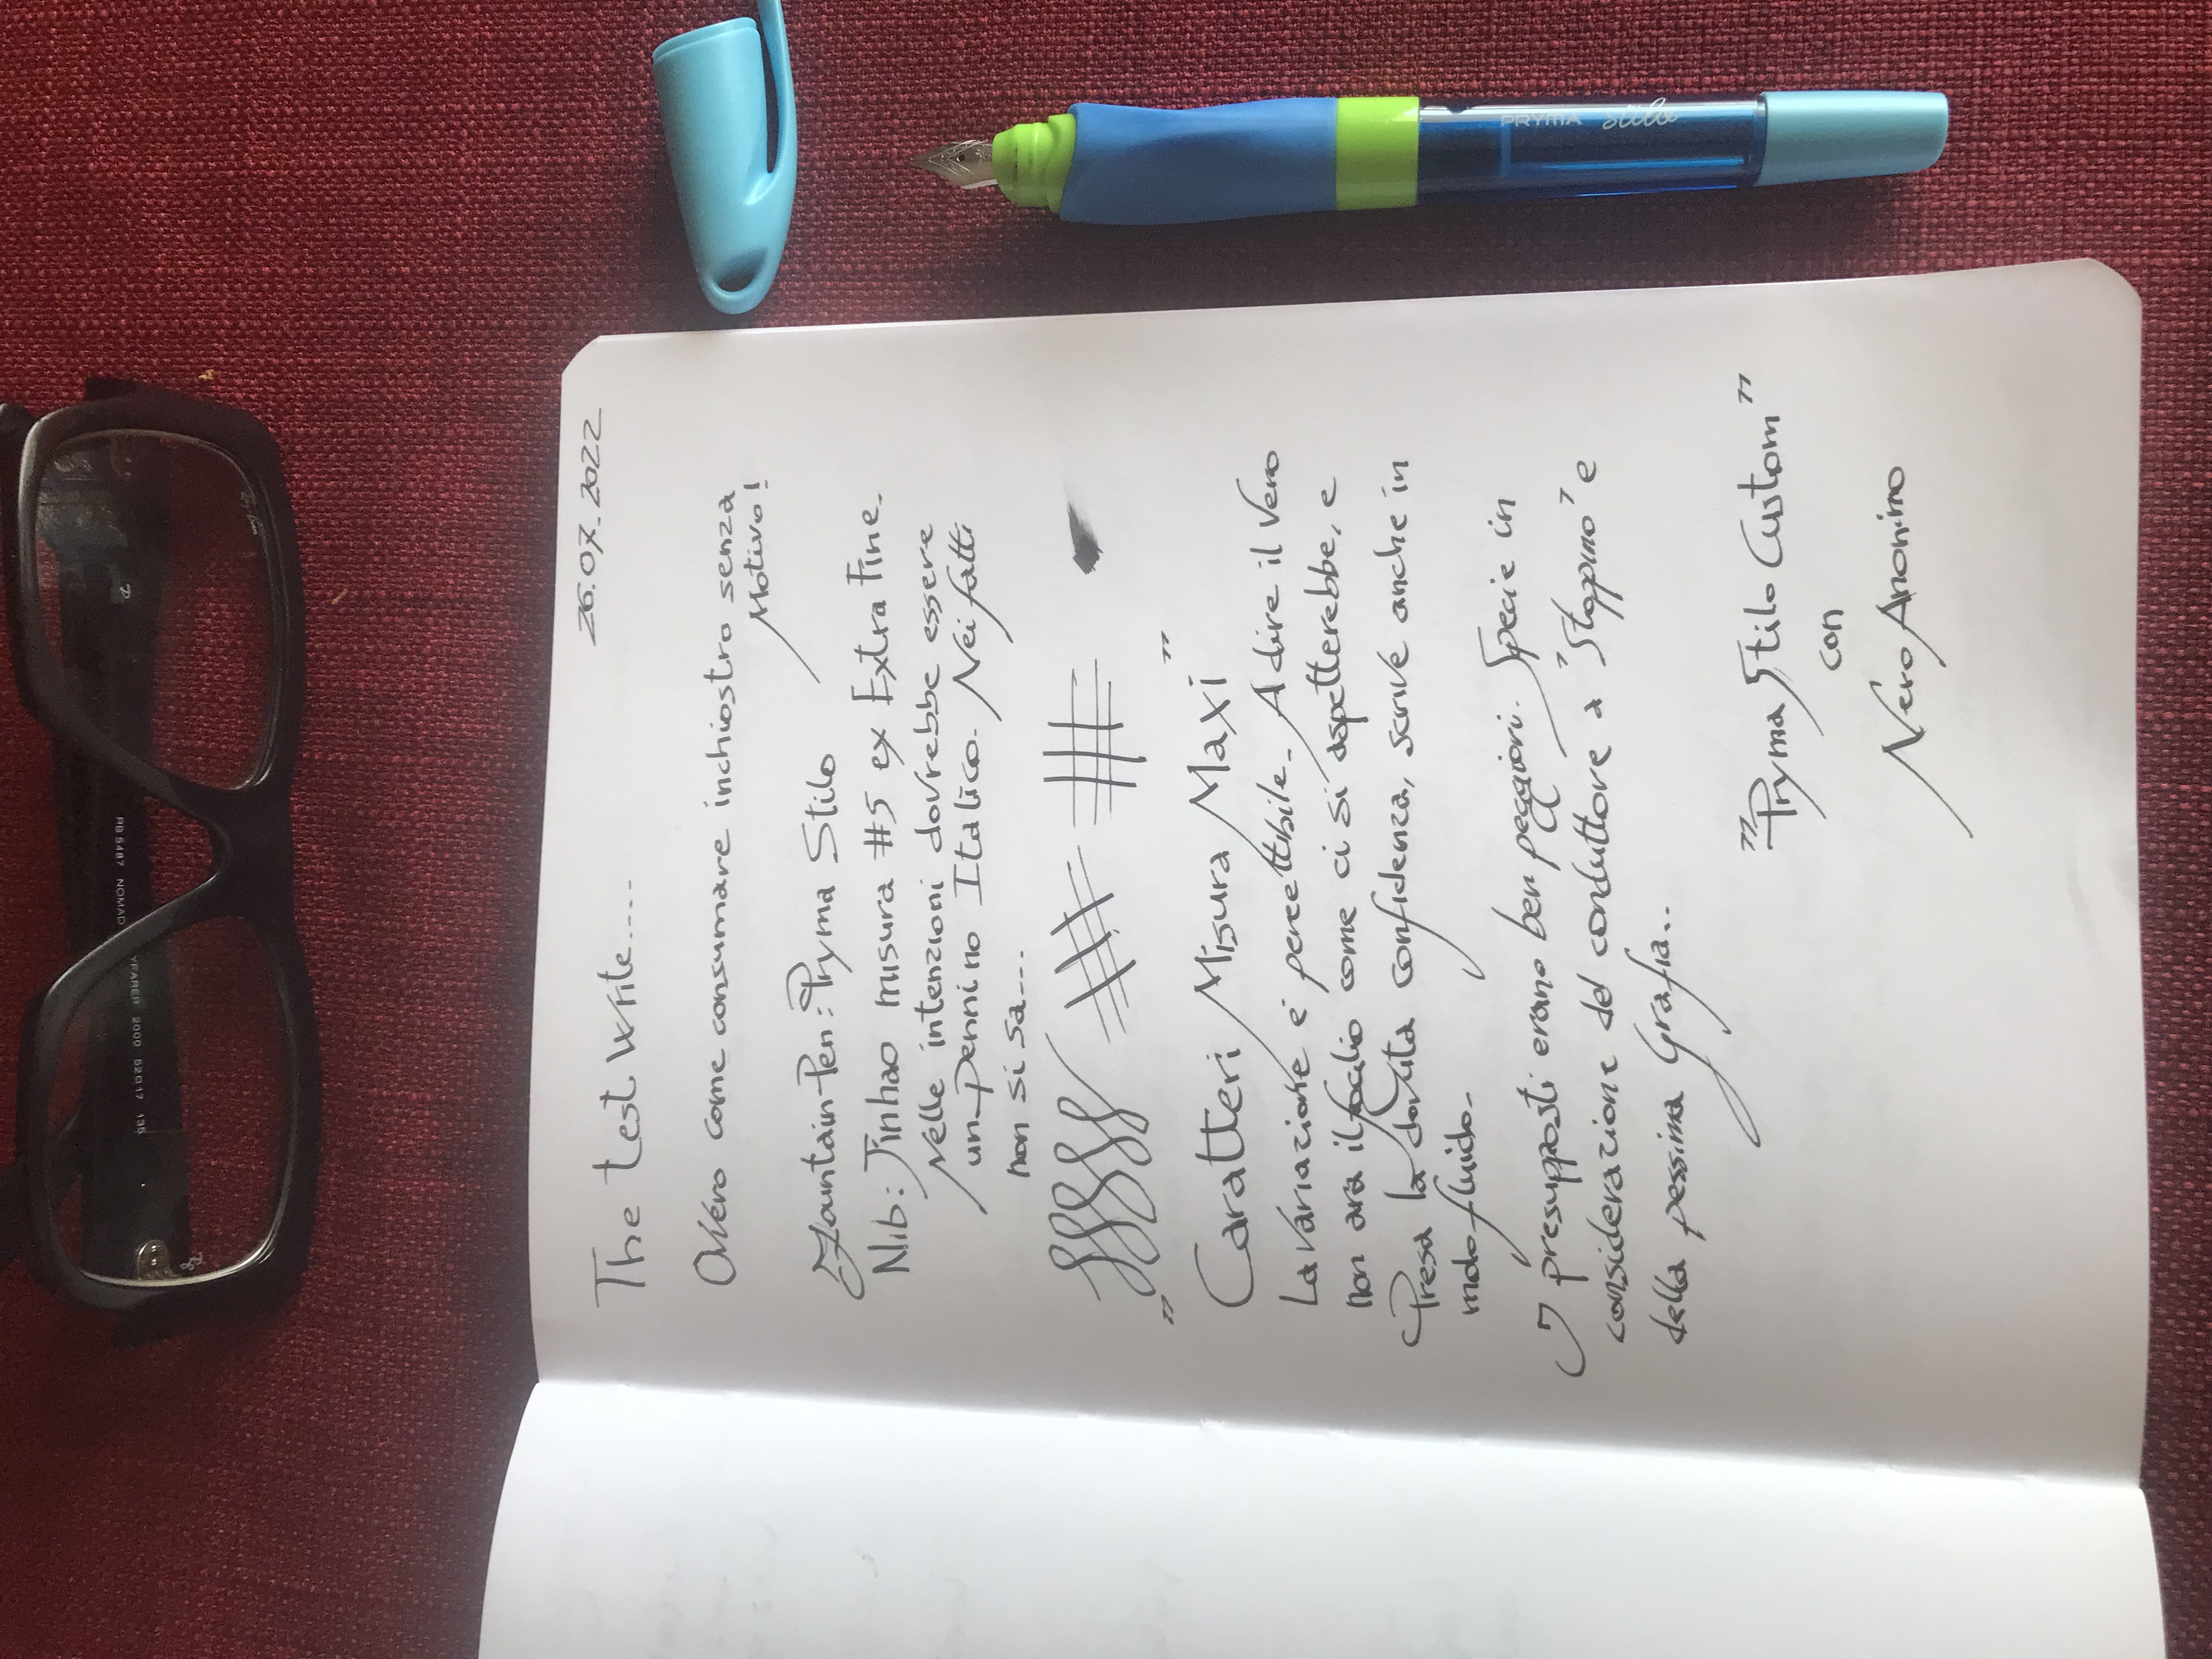 26.07.2022
The test write....
Ovvero come consumare inchiostro senza
Motivo!
Fountain Pen: Pryma Stilo
Nib: Jinhao misura #5 ex Extra Fine.
Nelle intenzioni dovrebbe essere
un pennino Italico. Nei fatti
non si sa...
"Caratteri Misura Maxi"
La variazione è percettibile. A dire il Vero
non era il facilio come ci si aspetterebbe, e
Presa la dovuta confidenza, scrive anche in
modo fluido.
I presupposti erano ben peggiori. Specie in
considerazione del conduttore a "Stoppino" e
della pessima Grafia..
"Pryma Stilo Custom"
con
Nero Anonimo
PRYMA stilo
RB 5487 NOMAD WAYFARER 2000 52□17 135